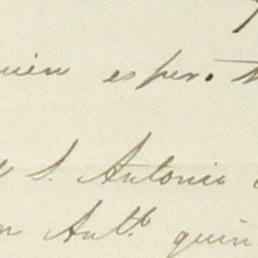 uien esper.
S. Antonio
n Ant.º quin